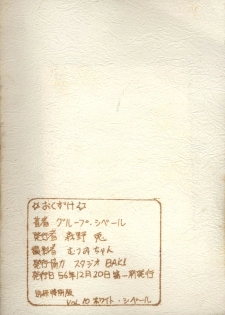 ☆おくずけ☆
著者 グループ・シベール
発行者 森野 兎
撮影者 むつみちゃん
発行協力 スタジオBAKI
発行日 56年12月20日 第一刷発行
Vol.10 ホワイト・シベール